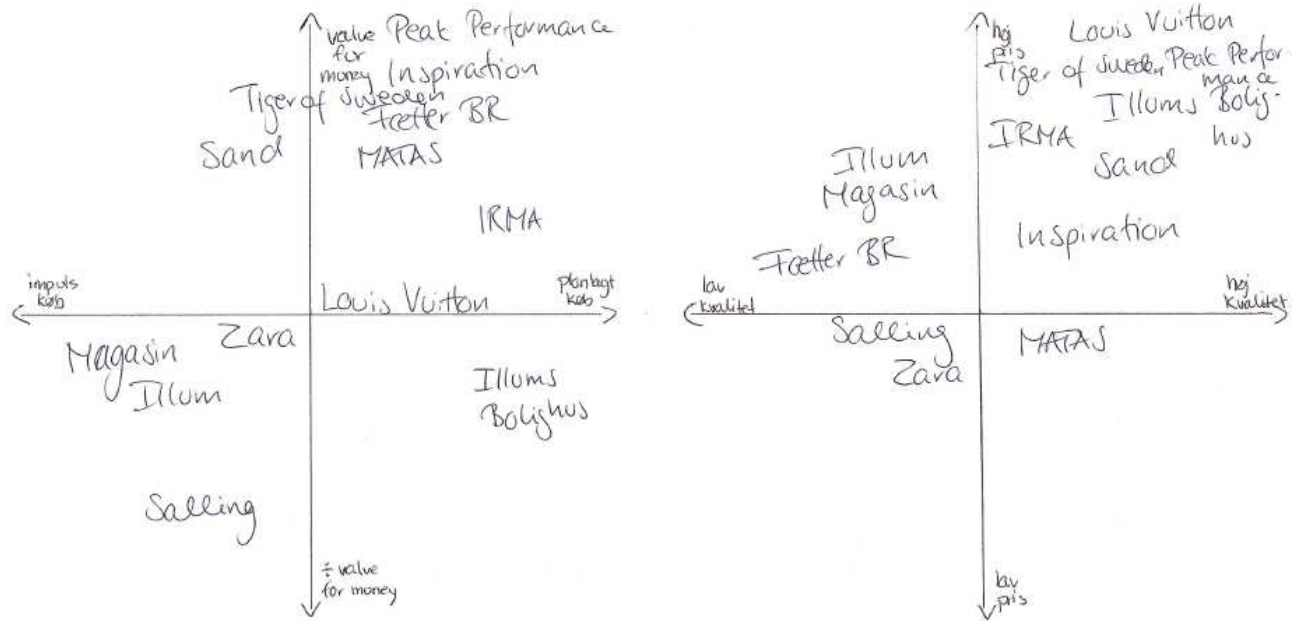 value
for
money
Peak Performance
Inspiration
Tiger of Sweden
Fætter BR
Sand
MATAS
IRMA
impuls
køb
planlagt
køb
Louis Vuitton
Zara
Magasin
Illum
Illums
Bolighus
Salling
÷ value
for money
høj
pris
Louis Vuitton
Tiger of Sweden
Peak Perfor-
mance
Illums Bolig-
hus
IRMA
Sand
Illum
Magasin
Inspiration
Fætter BR
lav
kvalitet
høj
kvalitet
Salling
MATAS
Zara
lav
pris